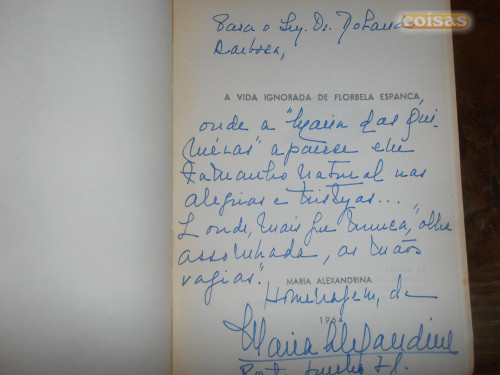 coisas
Para o Sr. Dr.
Barbosa,
A VIDA IGNORADA DE FLORBELA ESPANCA,
onde a "Maria das Qui-
méras" aparece em
tamanho natural nas
alegrias e tristezas...
E onde, mais que nunca, "olha
assombrada, as mãos
vazias".
MARIA ALEXANDRINA
Homenagem, de
1964
Maria Alexandrina